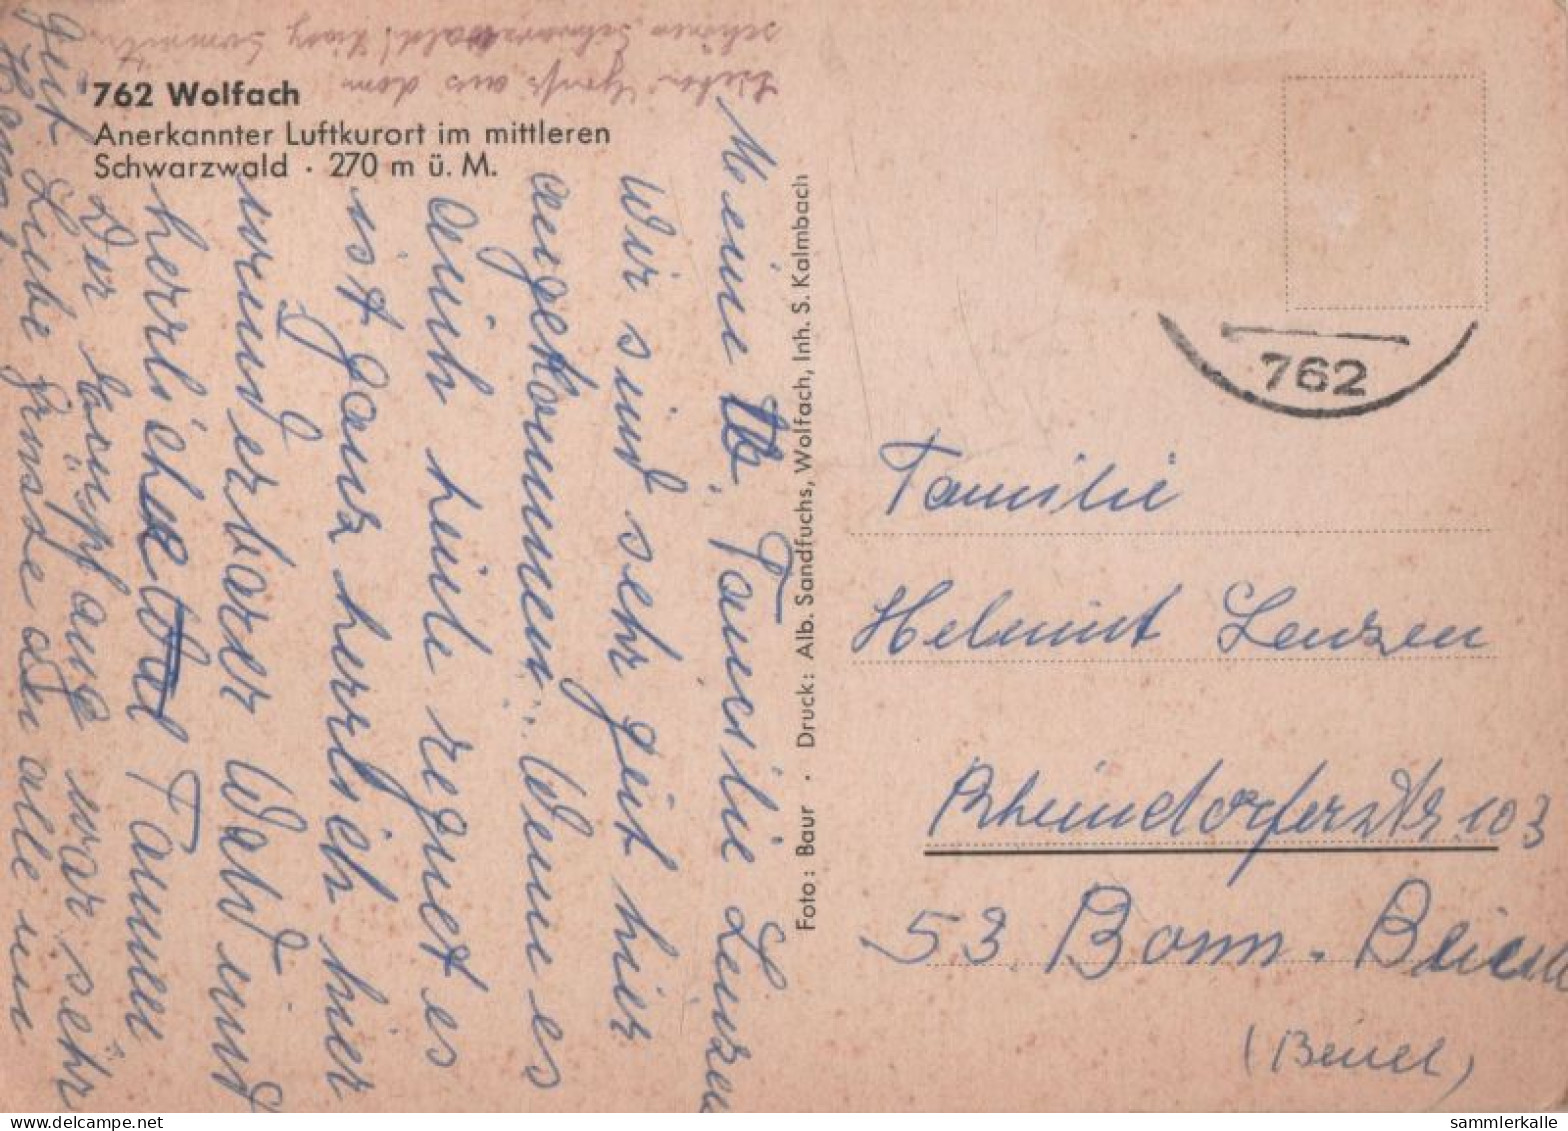 762 Wolfach
Anerkannter Luftkurort im mittleren
Schwarzwald · 270 m ü. M.
Gruß aus dem
schönen Schwarzwald!
Meine lb. Familie Lenzen
Wir sind sehr gut hier
angekommen. Wenn es
auch heute regnet es
ist ganz herrlich hier
wunderbarer Wald und
herrliche Tannen
Der Empfang war sehr
gut. Liebe Grüsse an alle
Foto: Baur · Druck: Alb. Sandfuchs, Wolfach, Inh. S. Kalmbach
762
Familie
Helmut Lenzen
Rheindorferstr 103
53 Bonn - Beuel
(Beuel)
delcampe.net
sammlerkalle